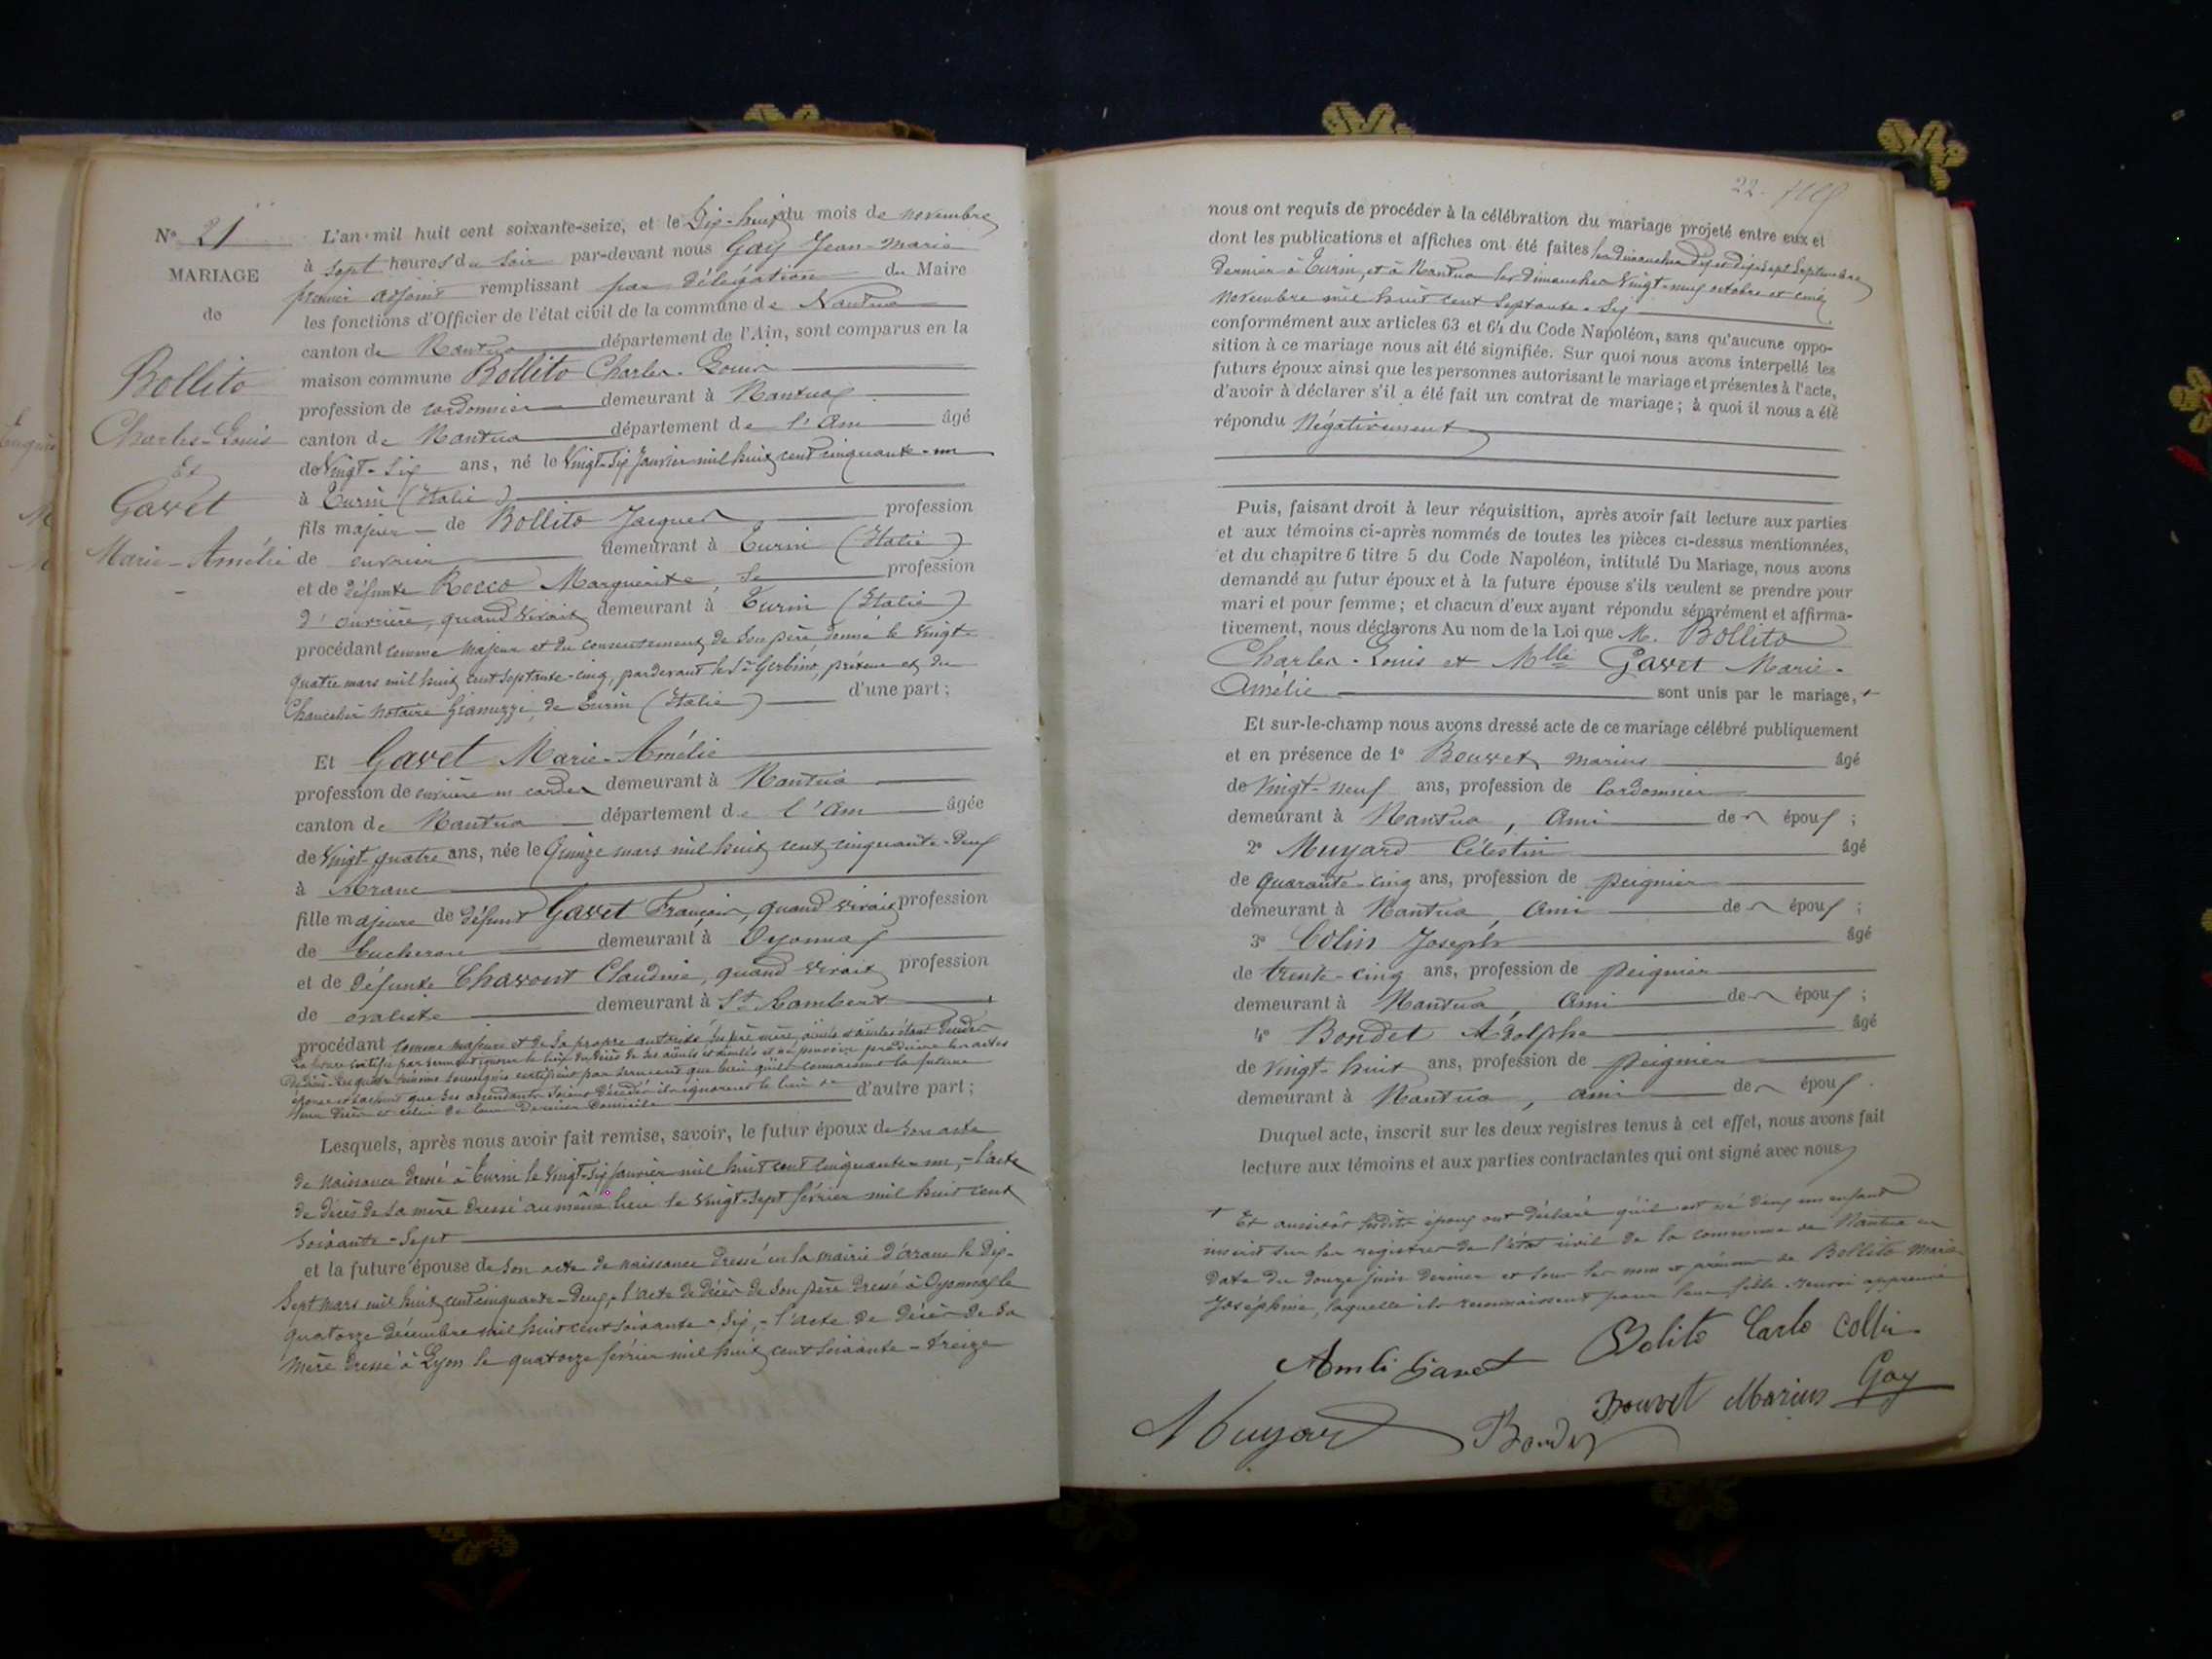 N° 21
MARIAGE
de
Bollito
Charles-Louis
Et
Gavet
Marie-Amélie
L'an mil huit cent soixante-seize, et le Dix-huit du mois de novembre
à sept heures du soir par-devant nous Gay Jean-Marie
premier adjoint remplissant par délégation du Maire
les fonctions d'Officier de l'état civil de la commune de Nantua
canton de Nantua département de l'Ain, sont comparus en la
maison commune Bollito Charles-Louis
profession de cordonnier demeurant à Nantua
canton de Nantua département de l'Ain âgé
de Vingt-Six ans, né le Vingt-Six Janvier mil huit cent cinquante-un
à Turin (Italie)
fils majeur de Bollito Jacques profession
de ouvrier demeurant à Turin (Italie)
et de défunte Rocco Marguerite, Se profession
d'ouvrière, quand vivait demeurant à Turin (Italie)
procédant comme Majeur et du consentement de Son père donné le Vingt-
quatre mars mil huit cent septante-cinq, pardevant le Sr Gerbino, préteur et du
Chancelier Notaire Gianuzzi, de Turin (Italie) d'une part;
Et Gavet Marie-Amélie
profession de ouvrière en cardes demeurant à Nantua
canton de Nantua département de l'Ain âgée
de Vingt-quatre ans, née le Quinze mars mil huit cent cinquante-deux
à Aranc
fille majeure de défunt Gavet François, quand vivait profession
de bucheron demeurant à Oyonnax
et de défunte Chavent Claudine, quand vivait profession
de ovaliste demeurant à St Rambert
procédant comme majeure et de Sa propre autorité, Ses père mère, aïeuls et aïeules étant décédés
La future certifie par serment ignorer le lieu du décès de Ses aïeuls et aïeules et ne pouvoir produire les actes
de décès. Les quatre témoins soussignés certifient par serment que bien qu'ils connaissent la future
épouse et sachent que Ses ascendants soient décédés ils ignorent le lieu de
leur décès et celui de leur dernier domicile d'autre part;
Lesquels, après nous avoir fait remise, savoir, le futur époux de Son acte
de Naissance dressé à Turin le Vingt-Six Janvier mil huit cent cinquante-un, - l'acte
de décès de Sa mère dressé au même lieu le Vingt-Sept février mil huit cent
Soixante-Sept
et la future épouse de Son acte de naissance dressé en la mairie d'Aranc le Dix-
Sept mars mil huit cent cinquante-Deux, l'acte de décès de Son père dressé à Oyonnax le
quatorze décembre mil huit cent Soixante-Six, - l'acte de décès de Sa
mère dressé à Lyon le quatorze février mil huit cent Soixante-treize
22.
nous ont requis de procéder à la célébration du mariage projeté entre eux et
dont les publications et affiches ont été faites les Dimanches Dix et dix-sept Septembre
dernier à Turin, et à Nantua les dimanches Vingt-neuf octobre et cinq
Novembre mil huit cent Septante-Six
conformément aux articles 63 et 64 du Code Napoléon, sans qu'aucune oppo-
sition à ce mariage nous ait été signifiée. Sur quoi nous avons interpellé les
futurs époux ainsi que les personnes autorisant le mariage et présentes à l'acte,
d'avoir à déclarer s'il a été fait un contrat de mariage; à quoi il nous a été
répondu Négativement
Puis, faisant droit à leur réquisition, après avoir fait lecture aux parties
et aux témoins ci-après nommés de toutes les pièces ci-dessus mentionnées,
et du chapitre 6 titre 5 du Code Napoléon, intitulé Du Mariage, nous avons
demandé au futur époux et à la future épouse s'ils veulent se prendre pour
mari et pour femme; et chacun d'eux ayant répondu séparément et affirma-
tivement, nous déclarons Au nom de la Loi que M. Bollito
Charles-Louis et Mlle Gavet Marie-
Amélie sont unis par le mariage, +
Et sur-le-champ nous avons dressé acte de ce mariage célébré publiquement
et en présence de 1° Bouvet Marius âgé
de Vingt-neuf ans, profession de Cordonnier
demeurant à Nantua, Ami des époux;
2° Muyard Célestin âgé
de Quarante-cinq ans, profession de peignier
demeurant à Nantua, Ami des époux;
3° Colin Joseph âgé
de trente-cinq ans, profession de peignier
demeurant à Nantua, Ami des époux;
4° Bondet Adolphe âgé
de Vingt-huit ans, profession de peignier
demeurant à Nantua, ami des époux.
Duquel acte, inscrit sur les deux registres tenus à cet effet, nous avons fait
lecture aux témoins et aux parties contractantes qui ont signé avec nous
+ Et aussitôt lesdits époux ont déclaré qu'il est né d'eux un enfant
inscrit sur les registres de l'état civil de la commune de Nantua en
date du douze juin dernier et sous les nom et prénoms de Bollito Marie
Joséphine, laquelle ils reconnaissent pour leur fille. Renvoi approuvé
Amli Gavet Bolito Carlo Collin
Muyard Bondet Bouvet Marius Gay